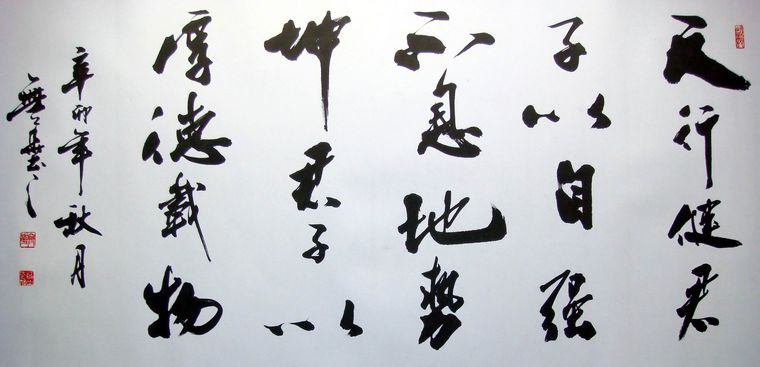 天行健君
子以自强
不息地势
坤君子以
厚德载物
辛卯年秋月
無